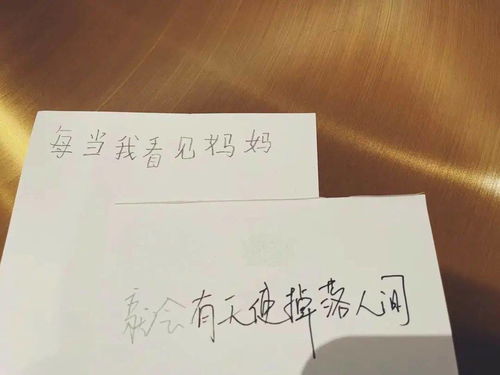 每当我看见妈妈
就会有天使掉落人间